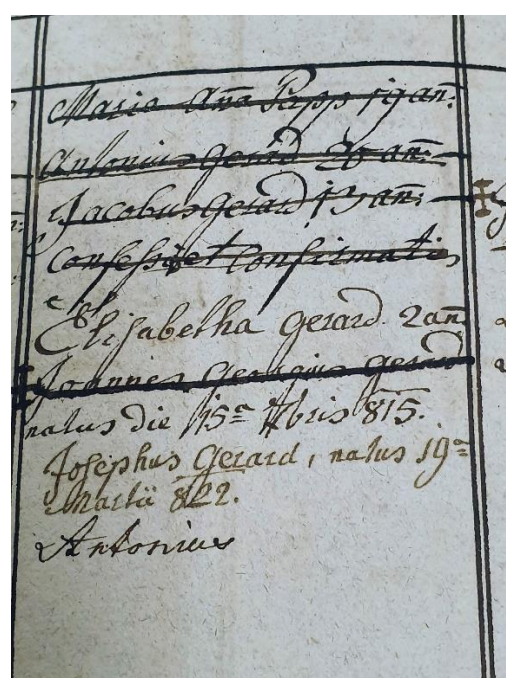 Maria Anna Papp 19 an:
Antonius Gerard 26 an:
Jacobus Gerard 13 an:
Confessi et Confirmatis
Elisabetha Gerard 2 an:
Joannes Georgius Gerard
natus die 15ª 7bris 815.
Josephus Gerard, natus 19ª
Martii 822.
Antonius